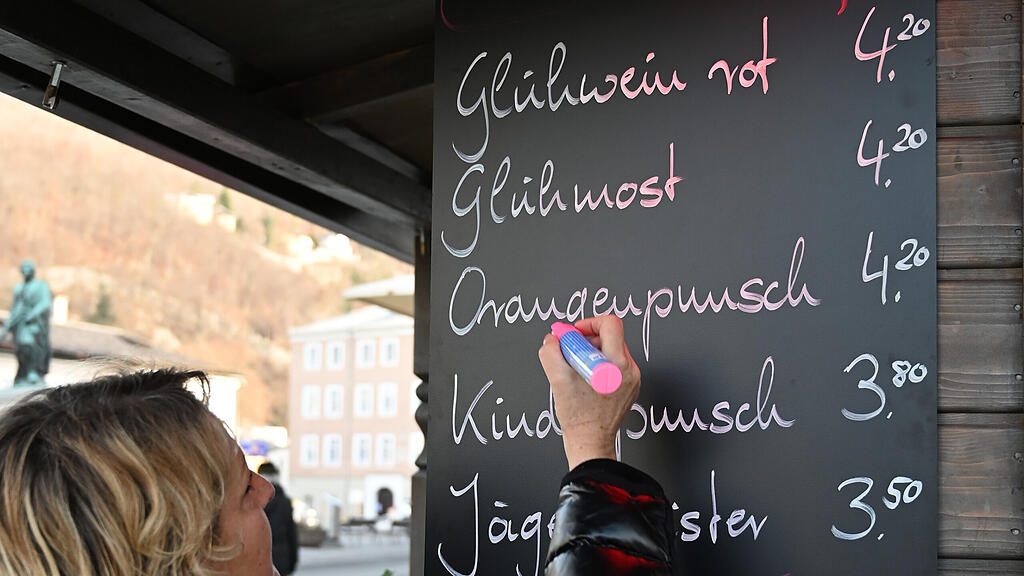 Glühwein rot 4.20
Glühmost 4.20
Orangenpunsch 4.20
Kinderpunsch 3.80
Jägermeister 3.50